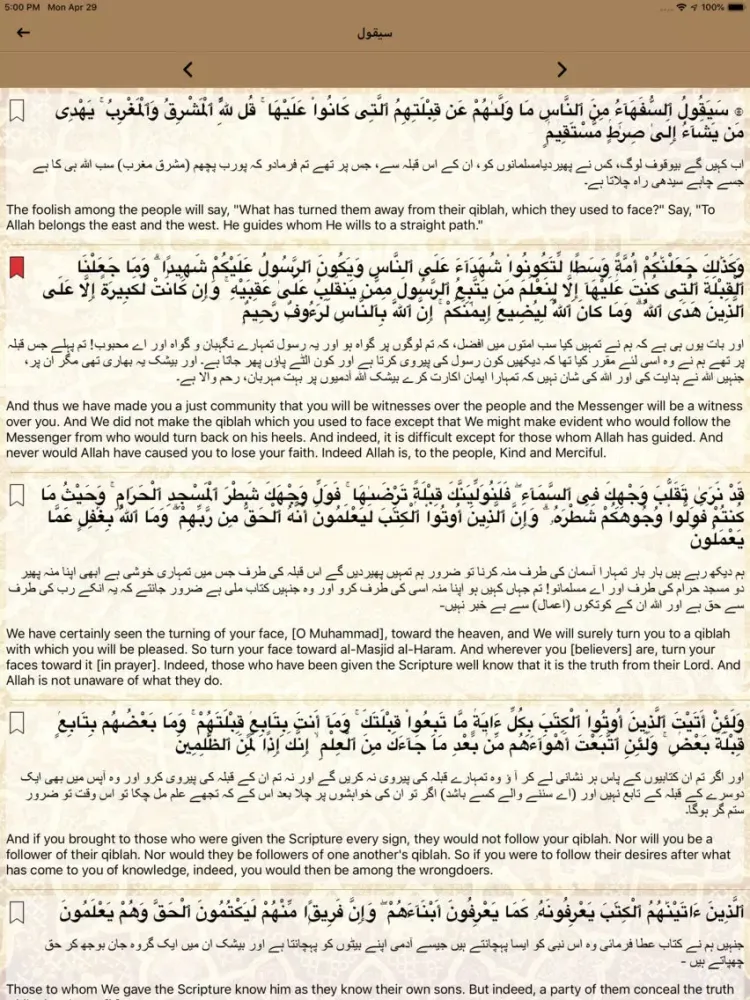 5:00 PM Mon Apr 29
100%
سيقول
۞ سَيَقُولُ ٱلسُّفَهَآءُ مِنَ ٱلنَّاسِ مَا وَلَّىٰهُمْ عَن قِبْلَتِهِمُ ٱلَّتِى كَانُوا۟ عَلَيْهَا ۚ قُل لِّلَّهِ ٱلْمَشْرِقُ وَٱلْمَغْرِبُ ۚ يَهْدِى
مَن يَشَآءُ إِلَىٰ صِرَٰطٍ مُّسْتَقِيمٍ
اب کہیں گے بیوقوف لوگ، کس نے پھیردیامسلمانوں کو، ان کے اس قبلہ سے، جس پر تھے تم فرمادو کہ پورب پچھم (مشرق مغرب) سب اللہ ہی کا ہے
جسے چاہے سیدھی راہ چلاتا ہے۔
The foolish among the people will say, "What has turned them away from their qiblah, which they used to face?" Say, "To
Allah belongs the east and the west. He guides whom He wills to a straight path."
وَكَذَٰلِكَ جَعَلْنَٰكُمْ أُمَّةً وَسَطًا لِّتَكُونُوا۟ شُهَدَآءَ عَلَى ٱلنَّاسِ وَيَكُونَ ٱلرَّسُولُ عَلَيْكُمْ شَهِيدًا ۗ وَمَا جَعَلْنَا
ٱلْقِبْلَةَ ٱلَّتِى كُنتَ عَلَيْهَآ إِلَّا لِنَعْلَمَ مَن يَتَّبِعُ ٱلرَّسُولَ مِمَّن يَنقَلِبُ عَلَىٰ عَقِبَيْهِ ۚ وَإِن كَانَتْ لَكَبِيرَةً إِلَّا عَلَى
ٱلَّذِينَ هَدَى ٱللَّهُ ۗ وَمَا كَانَ ٱللَّهُ لِيُضِيعَ إِيمَٰنَكُمْ ۚ إِنَّ ٱللَّهَ بِٱلنَّاسِ لَرَءُوفٌ رَّحِيمٌ
اور بات یوں ہی ہے کہ ہم نے تمہیں کیا سب امتوں میں افضل، کہ تم لوگوں پر گواہ ہو اور یہ رسول تمہارے نگہبان و گواہ اور اے محبوب! تم پہلے جس قبلہ
پر تھے ہم نے وہ اسی لئے مقرر کیا تھا کہ دیکھیں کون رسول کی پیروی کرتا ہے اور کون الٹے پاؤں پھر جاتا ہے۔ اور بیشک یہ بھاری تھی مگر ان پر،
جنہیں اللہ نے ہدایت کی اور اللہ کی شان نہیں کہ تمہارا ایمان اکارت کرے بیشک اللہ آدمیوں پر بہت مہربان، رحم والا ہے۔
And thus we have made you a just community that you will be witnesses over the people and the Messenger will be a witness
over you. And We did not make the qiblah which you used to face except that We might make evident who would follow the
Messenger from who would turn back on his heels. And indeed, it is difficult except for those whom Allah has guided. And
never would Allah have caused you to lose your faith. Indeed Allah is, to the people, Kind and Merciful.
قَدْ نَرَىٰ تَقَلُّبَ وَجْهِكَ فِى ٱلسَّمَآءِ ۖ فَلَنُوَلِّيَنَّكَ قِبْلَةً تَرْضَىٰهَا ۚ فَوَلِّ وَجْهَكَ شَطْرَ ٱلْمَسْجِدِ ٱلْحَرَامِ ۚ وَحَيْثُ مَا
كُنتُمْ فَوَلُّوا۟ وُجُوهَكُمْ شَطْرَهُۥ ۗ وَإِنَّ ٱلَّذِينَ أُوتُوا۟ ٱلْكِتَٰبَ لَيَعْلَمُونَ أَنَّهُ ٱلْحَقُّ مِن رَّبِّهِمْ ۗ وَمَا ٱللَّهُ بِغَٰفِلٍ عَمَّا
يَعْمَلُونَ
ہم دیکھ رہے ہیں بار بار تمہارا آسمان کی طرف منہ کرنا تو ضرور ہم تمہیں پھیردیں گے اس قبلہ کی طرف جس میں تمہاری خوشی ہے ابھی اپنا منہ پھیر
دو مسجد حرام کی طرف اور اے مسلمانو! تم جہاں کہیں ہو اپنا منہ اسی کی طرف کرو اور وہ جنہیں کتاب ملی ہے ضرور جانتے کہ یہ انکے رب کی طرف
سے حق ہے اور اللہ ان کے کوتکوں (اعمال) سے بے خبر نہیں-
We have certainly seen the turning of your face, [O Muhammad], toward the heaven, and We will surely turn you to a qiblah
with which you will be pleased. So turn your face toward al-Masjid al-Haram. And wherever you [believers] are, turn your
faces toward it [in prayer]. Indeed, those who have been given the Scripture well know that it is the truth from their Lord. And
Allah is not unaware of what they do.
وَلَئِنْ أَتَيْتَ ٱلَّذِينَ أُوتُوا۟ ٱلْكِتَٰبَ بِكُلِّ ءَايَةٍ مَّا تَبِعُوا۟ قِبْلَتَكَ ۚ وَمَآ أَنتَ بِتَابِعٍ قِبْلَتَهُمْ ۚ وَمَا بَعْضُهُم بِتَابِعٍ
قِبْلَةَ بَعْضٍ ۚ وَلَئِنِ ٱتَّبَعْتَ أَهْوَآءَهُم مِّنۢ بَعْدِ مَا جَآءَكَ مِنَ ٱلْعِلْمِ ۙ إِنَّكَ إِذًا لَّمِنَ ٱلظَّٰلِمِينَ
اور اگر تم ان کتابیوں کے پاس ہر نشانی لے کر آ ؤ وہ تمہارے قبلہ کی پیروی نہ کریں گے اور نہ تم ان کے قبلہ کی پیروی کرو اور وہ آپس میں بھی ایک
دوسرے کے قبلہ کے تابع نہیں اور (اے سننے والے کسے باشد) اگر تو ان کی خواہشوں پر چلا بعد اس کے کہ تجھے علم مل چکا تو اس وقت تو ضرور
ستم گر ہوگا۔
And if you brought to those who were given the Scripture every sign, they would not follow your qiblah. Nor will you be a
follower of their qiblah. Nor would they be followers of one another's qiblah. So if you were to follow their desires after what
has come to you of knowledge, indeed, you would then be among the wrongdoers.
ٱلَّذِينَ ءَاتَيْنَٰهُمُ ٱلْكِتَٰبَ يَعْرِفُونَهُۥ كَمَا يَعْرِفُونَ أَبْنَآءَهُمْ ۖ وَإِنَّ فَرِيقًا مِّنْهُمْ لَيَكْتُمُونَ ٱلْحَقَّ وَهُمْ يَعْلَمُونَ
جنہیں ہم نے کتاب عطا فرمائی وہ اس نبی کو ایسا پہچانتے ہیں جیسے آدمی اپنے بیٹوں کو پہچانتا ہے اور بیشک ان میں ایک گروہ جان بوجھ کر حق
چھپاتے ہیں -
Those to whom We gave the Scripture know him as they know their own sons. But indeed, a party of them conceal the truth